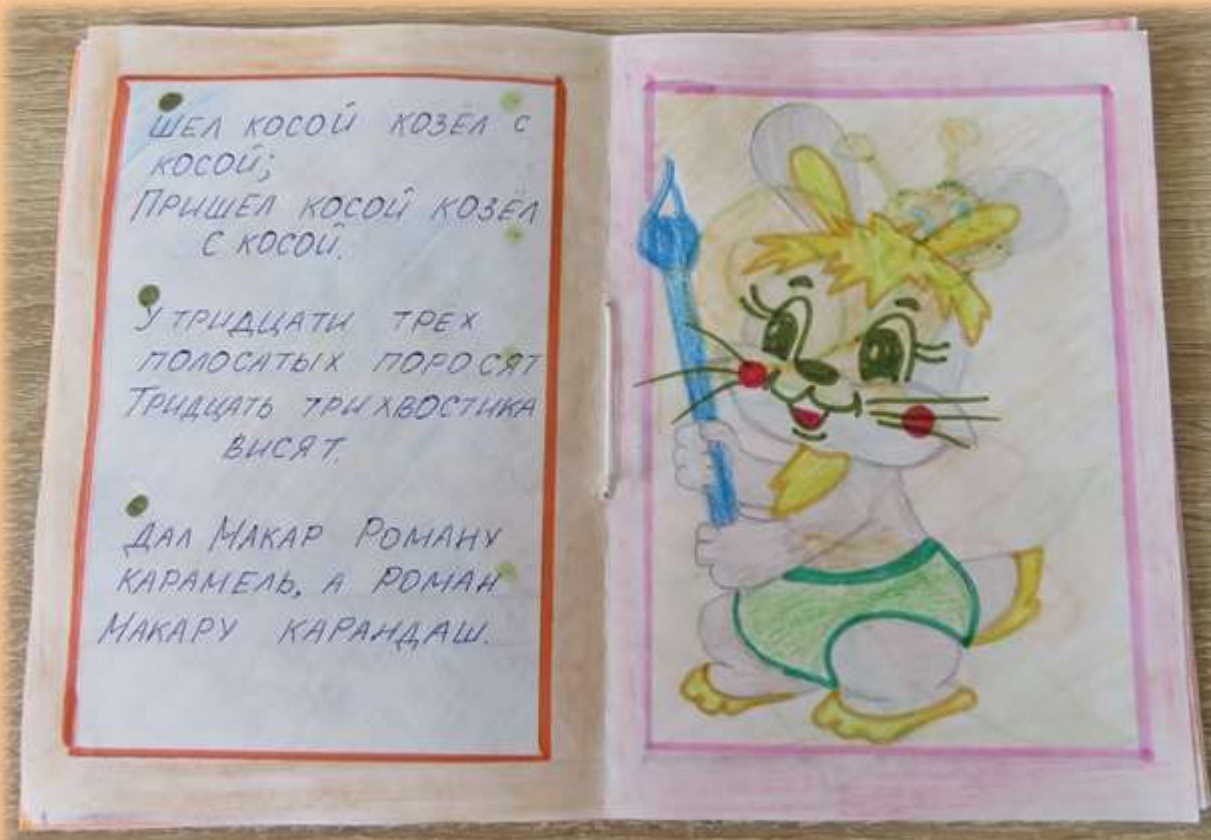 ШЕЛ КОСОЙ КОЗЕЛ С
КОСОЙ;
ПРИШЕЛ КОСОЙ КОЗЁЛ
С КОСОЙ.
У ТРИДЦАТИ ТРЕХ
ПОЛОСАТЫХ ПОРОСЯТ
ТРИДЦАТЬ ТРИ ХВОСТИКА
ВИСЯТ.
ДАЛ МАКАР РОМАНУ
КАРАМЕЛЬ, А РОМАН
МАКАРУ КАРАНДАШ.